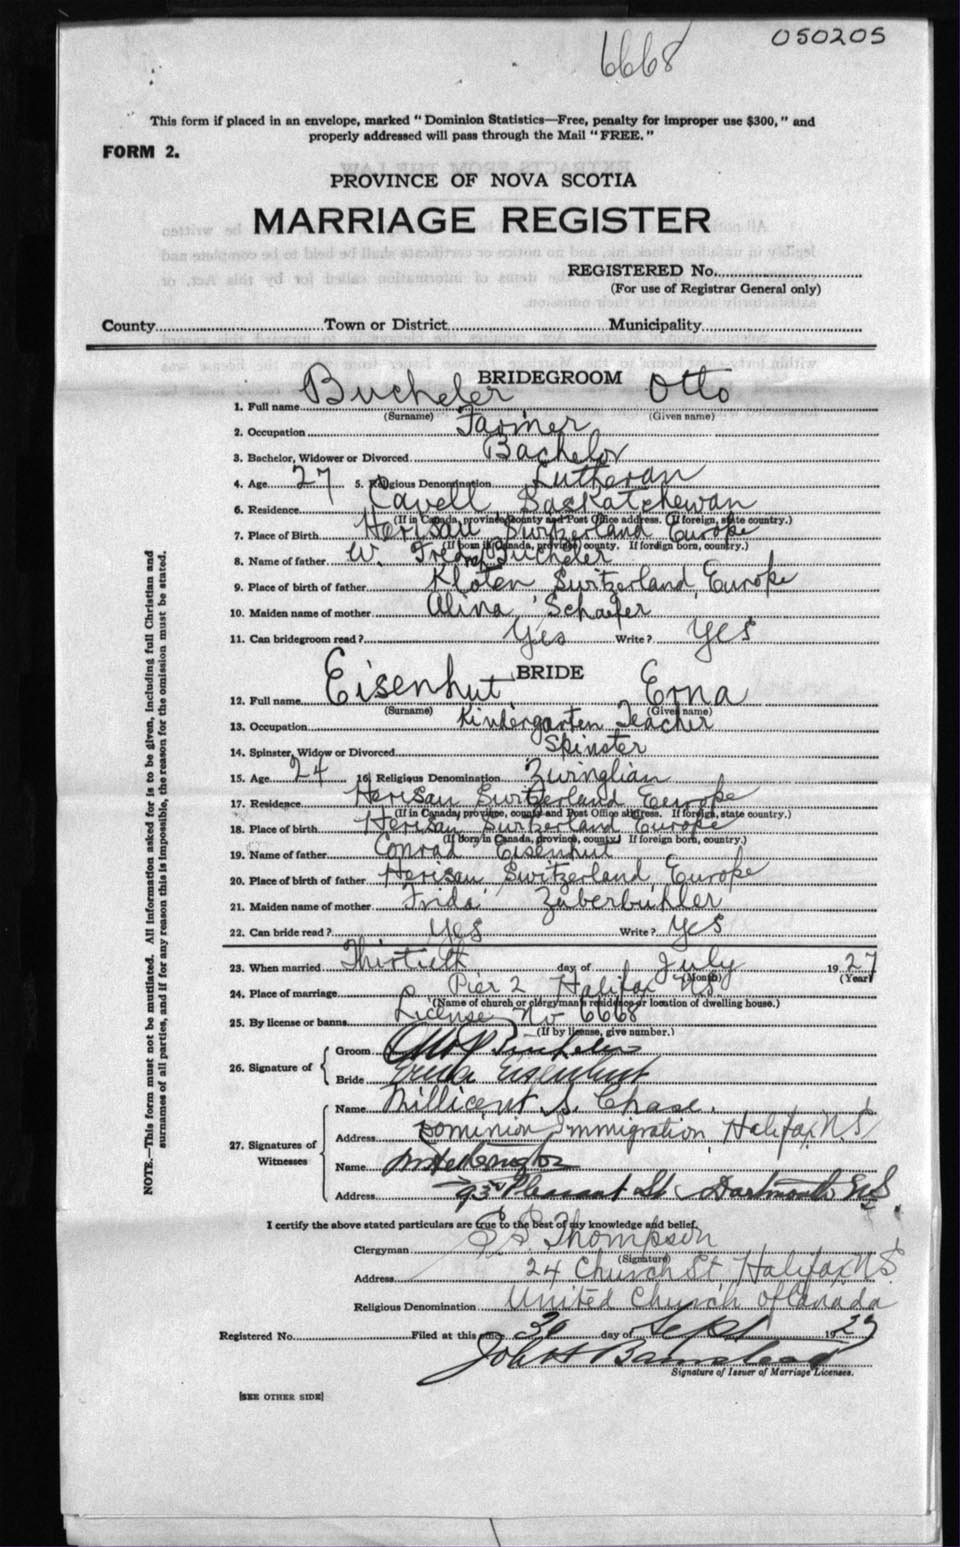 050205
6668
This form if placed in an envelope, marked "Dominion Statistics—Free, penalty for improper use $300," and
properly addressed will pass through the Mail "FREE."
FORM 2.
PROVINCE OF NOVA SCOTIA
MARRIAGE REGISTER
REGISTERED No.
(For use of Registrar General only)
County Town or District Municipality
BRIDEGROOM
1. Full name Bucheler Otto
(Surname) (Given name)
2. Occupation Farmer
3. Bachelor, Widower or Divorced Bachelor
4. Age 27 5. Religious Denomination Lutheran
6. Residence Cavell Saskatchewan
(If in Canada, province, county and Post Office address. If foreign, state country.)
7. Place of Birth Herisau Switzerland Europe
(If born in Canada, province, county. If foreign born, country.)
8. Name of father W. Fredrs Bucheler
9. Place of birth of father Kloten, Switzerland, Europe
10. Maiden name of mother Alina Schaefer
11. Can bridegroom read? Yes Write? Yes
BRIDE
12. Full name Eisenhut Erna
(Surname) (Given name)
13. Occupation Kindergarten Teacher
14. Spinster, Widow or Divorced Spinster
15. Age 24 16. Religious Denomination Zwinglian
17. Residence Herisau Switzerland Europe
(If in Canada, province, county and Post Office address. If foreign, state country.)
18. Place of birth Herisau Switzerland Europe
(If Born in Canada, province, county. If foreign born, country.)
19. Name of father Conrad Eisenhut
20. Place of birth of father Herisau, Switzerland, Europe
21. Maiden name of mother Frida Zuberbuhler
22. Can bride read? Yes Write? Yes
23. When married Thirtieth day of July 1927
(Month) (Year)
24. Place of marriage Pier 2 Halifax N.S.
(Name of church or clergyman's residence or location of dwelling house.)
25. By license or banns License No 6668
(If by license, give number.)
26. Signature of
Groom Otto Bucheler
Bride Erna Eisenhut
27. Signatures of Witnesses
Name Millicent S. Chase.
Address Dominion Immigration, Halifax N.S.
Name
Address 93 Pleasant St Dartmouth N.S.
I certify the above stated particulars are true to the best of my knowledge and belief.
Clergyman Thompson
(Signature)
Address 24 Church St, Halifax N.S.
Religious Denomination United Church of Canada
Registered No. Filed at this office 30 day of Sept 1927
John
Signature of Issuer of Marriage Licenses.
[SEE OTHER SIDE]
NOTE.—This form must not be mutilated. All information asked for is to be given, including full Christian and
surnames of all parties, and if for any reason this is impossible, the reason for the omission must be stated.